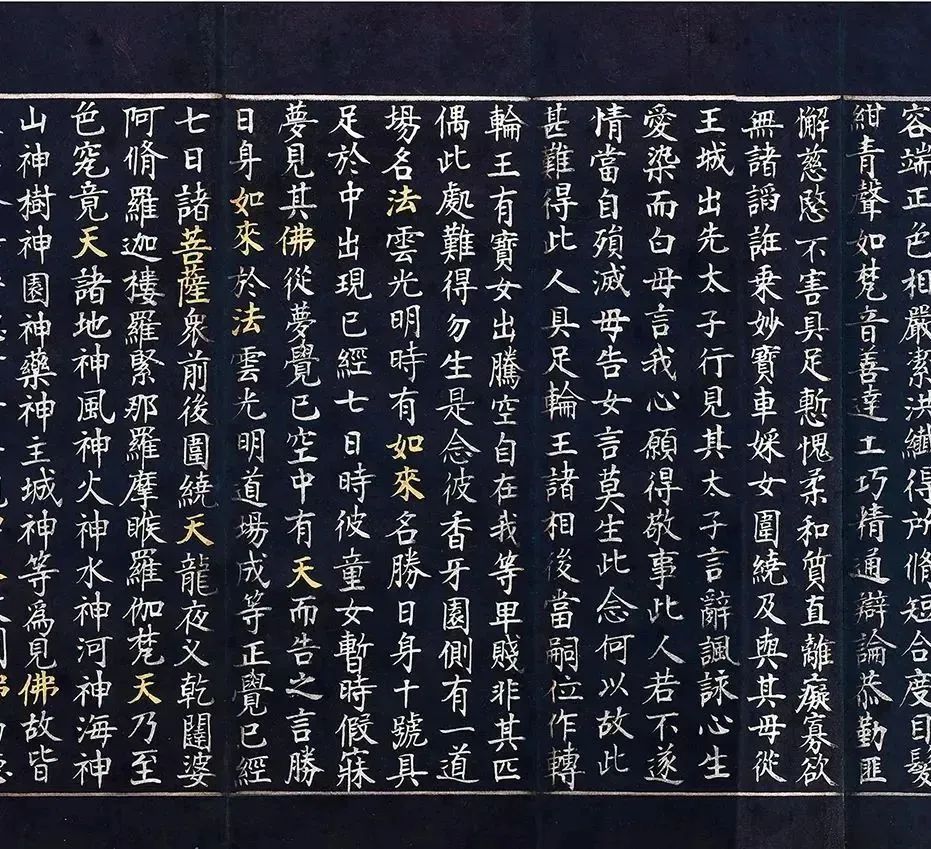 容端正色相嚴潔洪纖得所脩短合度目髮
紺青聲如梵音善達工巧精通辯論恭勤匪
懈慈愍不害具足慙愧柔和質直離癡寡欲
無諸謟誑乘妙寶車婇女圍繞及與其母從
王城出先太子行見其太子言辭諷詠心生
愛染而白母言我心願得敬事此人若不遂
情當自殞滅母告女言莫生此念何以故此
甚難得此人具足輪王諸相後當嗣位作轉
輪王有寶女出騰空自在我等卑賤非其匹
偶此處難得勿生是念彼香牙園側有一道
場名法雲光明時有如來名勝日身十號具
足於中出現已經七日時彼童女暫時假寐
夢見其佛從夢覺已空中有天而告之言勝
日身如來於法雲光明道場成等正覺已經
七日諸菩薩衆前後圍繞天龍夜叉乾闥婆
阿脩羅迦樓羅緊那羅摩睺羅伽梵天乃至
色究竟天諸地神風神火神水神河神海神
山神樹神園神藥神主城神等爲見佛故皆